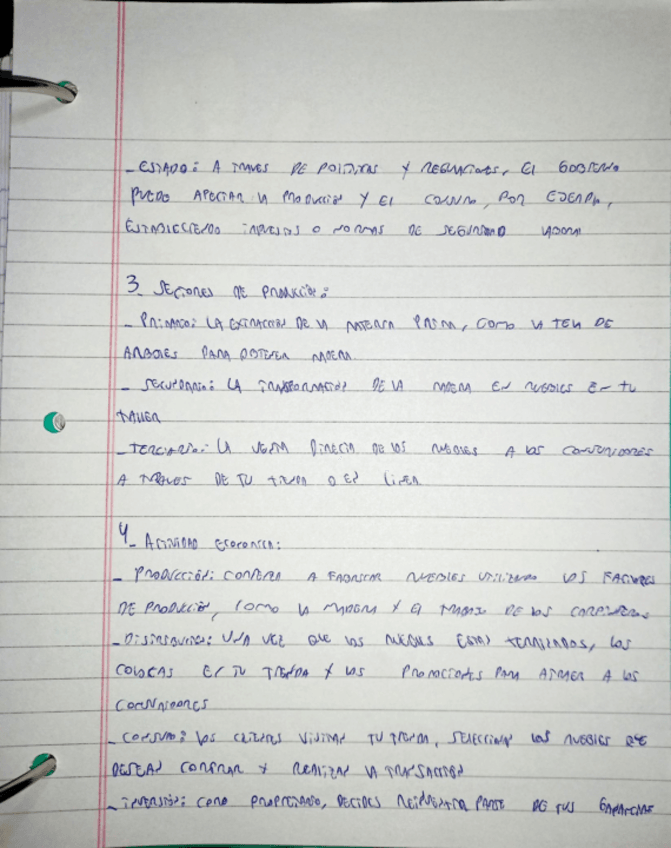 - ESTADO: A TRAVES DE POLITICAS Y REGULACIONES, EL GOBIERNO
PUEDO AFECTAR LA PRODUCCION Y EL CONSUMO, POR EJEMPLO,
ESTABLECIENDO IMPUESTOS O NORMAS DE SEGURIDAD LABORAL
3_ SECTORES DE PRODUCCION:
- PRIMARIO: LA EXTRACCION DE LA MATERIA PRIMA, COMO LA TALA DE
ARBOLES PARA OBTENER MADERA
- SECUNDARIO: LA TRANSFORMACION DE LA MADERA EN MUEBLES EN TU
TALLER
- TERCIARIO: LA VENTA DIRECTA DE LOS MUEBLES A LOS CONSUMIDORES
A TRAVES DE TU TIENDA O EN LINEA
4_ ACTIVIDAD ECONOMICA:
- PRODUCCIÓN: A FABRICAR MUEBLES UTILIZANDO LOS FACTORES
DE PRODUCCION, COMO LA MADERA Y EL TRABAJO DE LOS CARPINTEROS
- DISTRIBUCION: UNA VEZ QUE LOS MUEBLES ESTAN TERMINADOS, LOS
COLOCAS EN TU TIENDA Y LOS PROMOCIONES PARA ATRAER A LOS
CONSUMIDORES
- CONSUMO: LOS CLIENTES VISITAN TU TIENDA, SELECCIONAN LOS MUEBLES QUE
DESEAN COMPRAR Y REALIZAN LA TRANSACCION
- INVERSIÓN: COMO PROPIETARIO, DECIDES REINVERTIR PARTE DE TUS GANANCIAS